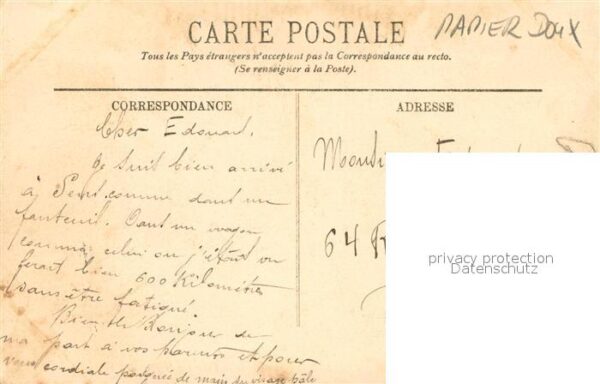 CARTE POSTALE
PAPIER DOUX
Tous les Pays étrangers n'acceptent pas la Correspondance au recto.
(Se renseigner à la Poste).
CORRESPONDANCE
Cher Edouard,
Je suit bien arrivé
à comme dant un
fauteuil. Dant un wagon
comme celui ou j'étant on
ferait bien 600 Kilomètres
sans être fatigué.
Bonjour de
ma part à vos parents et pour
vous cordiale poignée de main du visage pâle
ADRESSE
64
privacy protection
Datenschutz